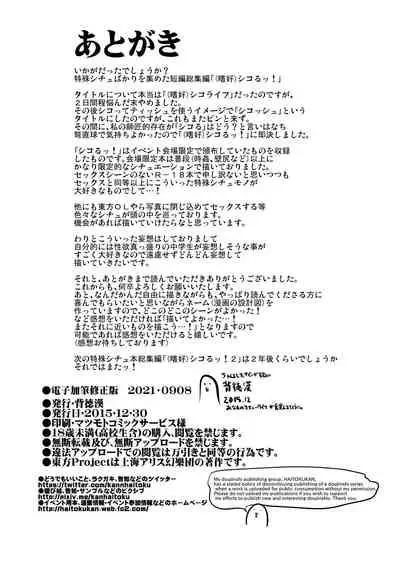 あとがき
いかがだったでしょうか？
特殊シチュばかりを集めた短編総集編「(嗜好)シコるっ！」
タイトルについて本当は「(嗜好)シコライフ」だったのですが、
２日間程悩んだ末やめました。
その後シコってティッシュを使うイメージで「シコッシュ」という
タイトルにしたのですが、これもまたピンと来ず。
その間に、私の師匠的存在が「シコる」はどう？と言いはなち
弩直球で気持ちよかったので「(嗜好)シコるっ！」に即決しました。
「シコるっ！」はイベント会場限定で頒布していたものを収録
したものです。会場限定本は普段(時姦、壁尻など)以上に
かなり限定的なシチュエーションで描いておりました。
セックスシーンのないＲ－１８本で申し訳ないと思いつつも
セックスと同等以上にこういった特殊シチュモノが
大好きなものでして…！
他にも東方ＯＬやら写真に閉じ込めてセックスする等
色々なシチュが頭の中を巡っております。
機会があれば描いていけたらなと思っています。
わりとこういった妄想はしておりまして
自分的には性欲真っ盛りの中学生が妄想しそうな事が
すごく大好きなので遠慮せずどんどん妄想して
描いていきたいです。
それと、あとがきまで読んでいただきありがとうございました。
これからも、何卒よろしくお願いいたします。
あと、なんだかんだ自由に描きながらも、やっぱり読んでくださる方に
喜んでもらいたいと思いながらネーム(漫画の設計図)を
作っていますので、どこのどこのシーンがよかった！
など感想をいただければ「描いてよかった…！
またそれに近いものを描こう…！」となりますので
可能であれば感想をいただけると嬉しいです。
(感想お待ちしております)
次の特殊シチュ本総集編「(嗜好)シコるっ！２」は２年後くらいでしょうか
それではまたッ！
背徳漢
2015.12
●電子加筆修正版　2021・0908
●発行・背徳漢
●発行日・2015・12・30
●印刷・マツモトコミックサービス様
●18歳未満(高校生含)の購入、閲覧を禁じます。
●無断転載及び、無断アップロードを禁じます。
●違法アップロードでの閲覧は万引きと同等の行為です。
●東方Projectは上海アリス幻樂団の著作です。
●どうでもいいこと、ラクガキ、告知などのツイッター
https://twitter.com/kannhaitoku
●遊び絵、告知・サンプルなどのピクシブ
http://pixiv.me/kannhaitoku
●イベント用本、通販情報・イベント参加情報などのホームページ
http://haitokukan.web.fc2.com/
My doujinshi publishing group, HAITOKUKAN,
has a stated policy of discontinuing publishing of a doujinshi series
when a work is uploaded for public consumption without my permission.
Please do not upload my publications if you wish to support
my efforts to publish new and interesting doujinshi. Thank you.